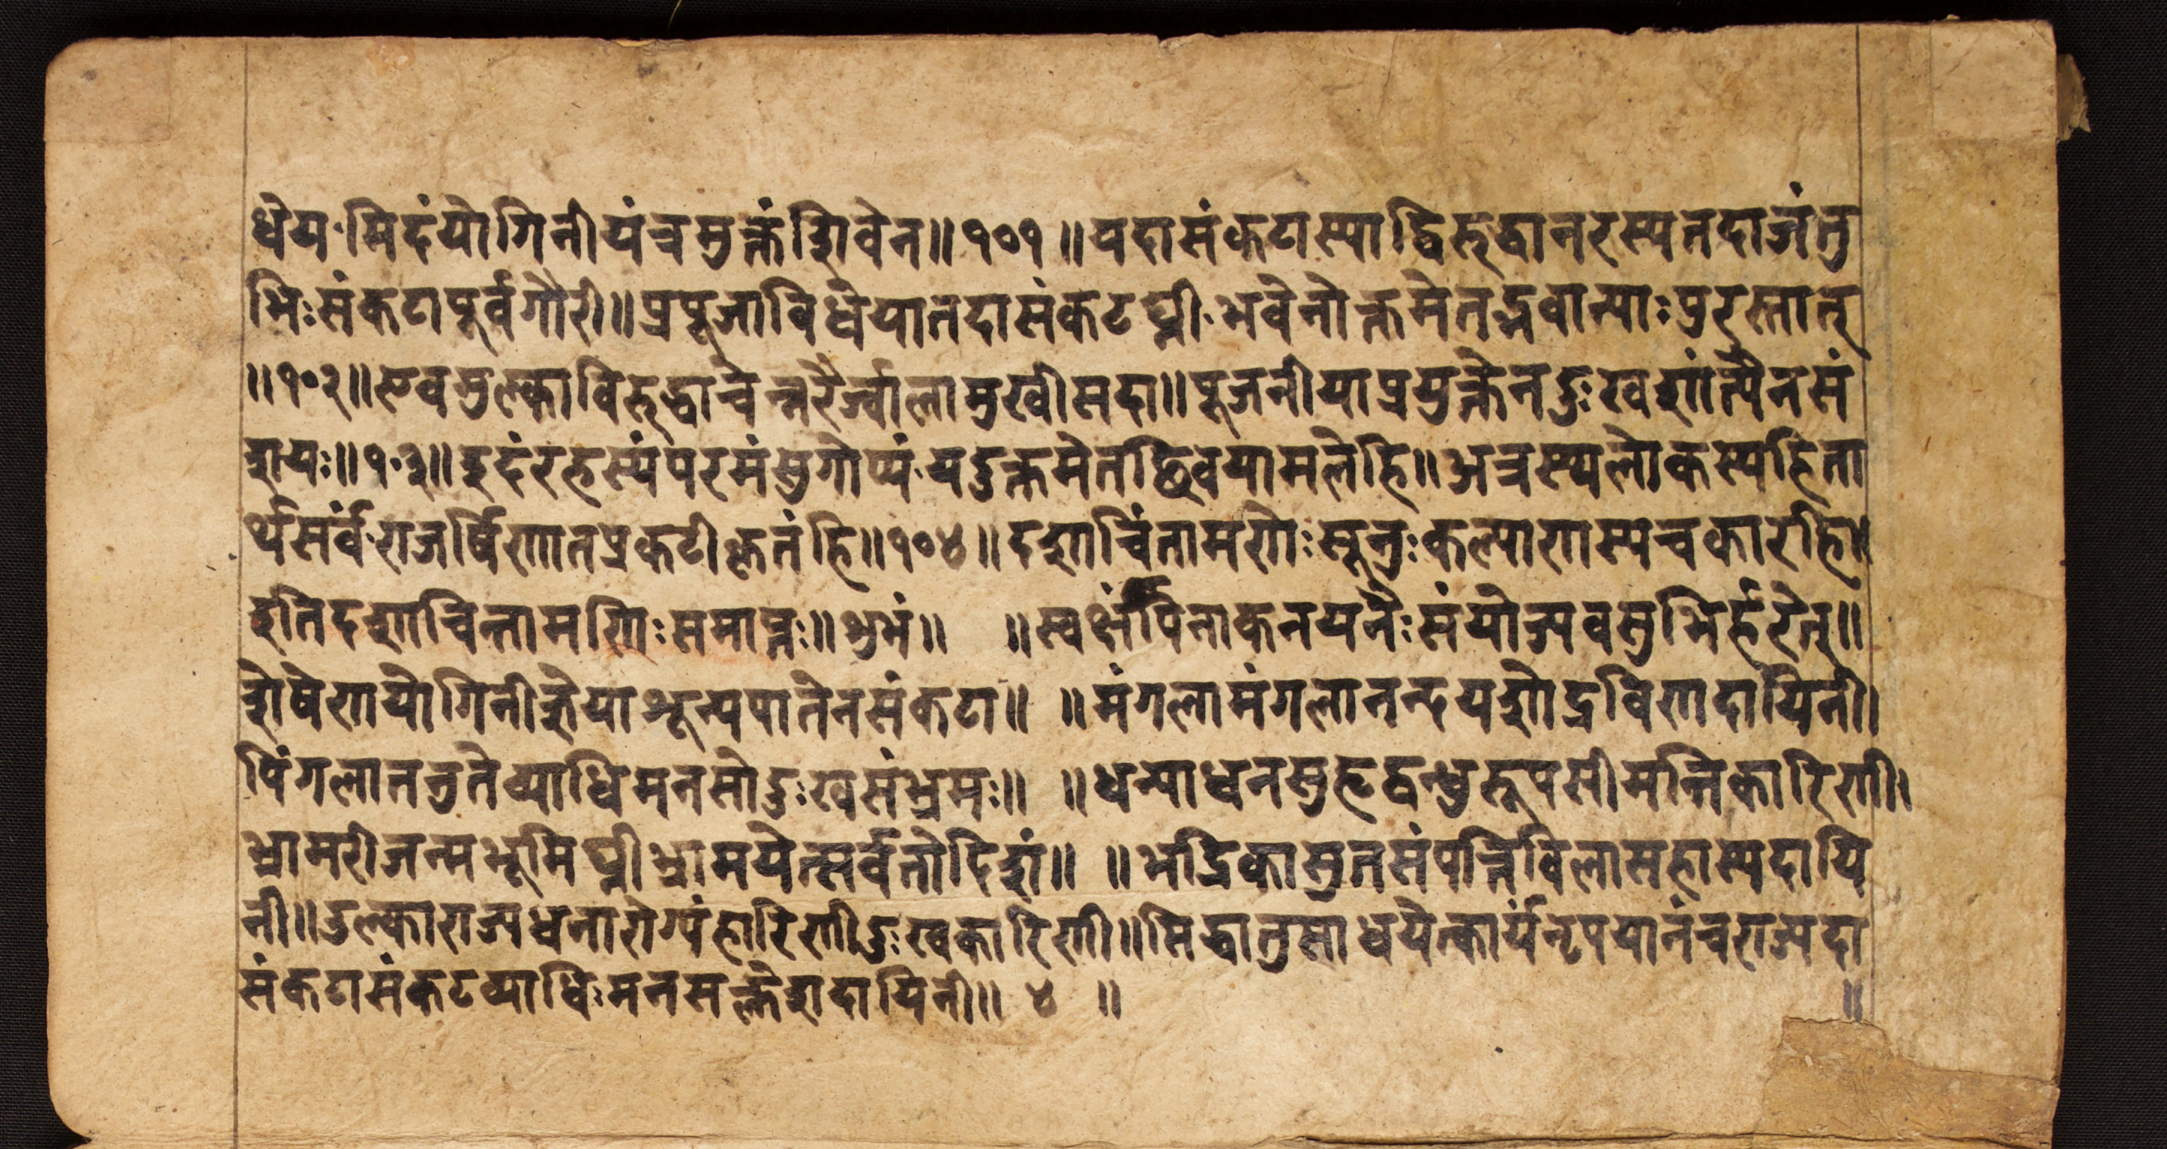 धेय मिदंयोगिनीयंत्रमुक्तंशिवेन॥१०१॥यदासंकटास्याद्विरुद्धानरस्यतदाजंतु
भिःसंकटापूर्वगौरी॥प्रपूजाविधेयातदासंकटघ्नी भवेनोक्तमेतद्भवान्याःपुरस्तात्
॥१०२॥एवमुल्काविरुद्धाचेन्नरैर्ज्वालामुखीसदा॥पूजनीयाप्रमुक्तेनदुःखशांत्यैनसं
शयः॥१०३॥इदंरहस्यंपरमंसुगोप्यं यदुक्तमेतछिवयामलेहि॥अत्रस्यलोकस्यहिता
र्थसर्वं राजर्षिणातप्रकटीकृतंहि॥१०४॥दशाचिंतामणेःसूनुःकल्याणस्यचकारहि॥
इतिदशाचिन्तामणिःसमाप्तः॥शुभं॥ ॥स्वर्क्षंपिनाकनयनैःसंयोज्यवसुभिर्हरेत्॥
शेषेणयोगिनीज्ञेयाशून्यपातेनसंकटा॥ ॥मंगलामंगलानन्दयशोद्रविणदायिनी।
पिंगलातनुतेव्याधिमनसोदुःखसंभ्रमः॥ ॥धन्याधनसुहृद्बन्धुरूपसीमन्तिकारिणी।
भ्रामरीजन्मभूमिघ्नीभ्रामयेत्सर्वतोदिशं॥ ॥भद्रिकासुतसंपत्तिविलासहास्यदायि
नी॥उल्काराज्यधनारोग्यंहारिणीदुःखकारिणी॥सिद्धातुसाधयेत्कार्यंनृपयानंचराज्यदा
संकटासंकटव्याधिःमनसक्लेशदायिनी॥ ४ ॥ ॥